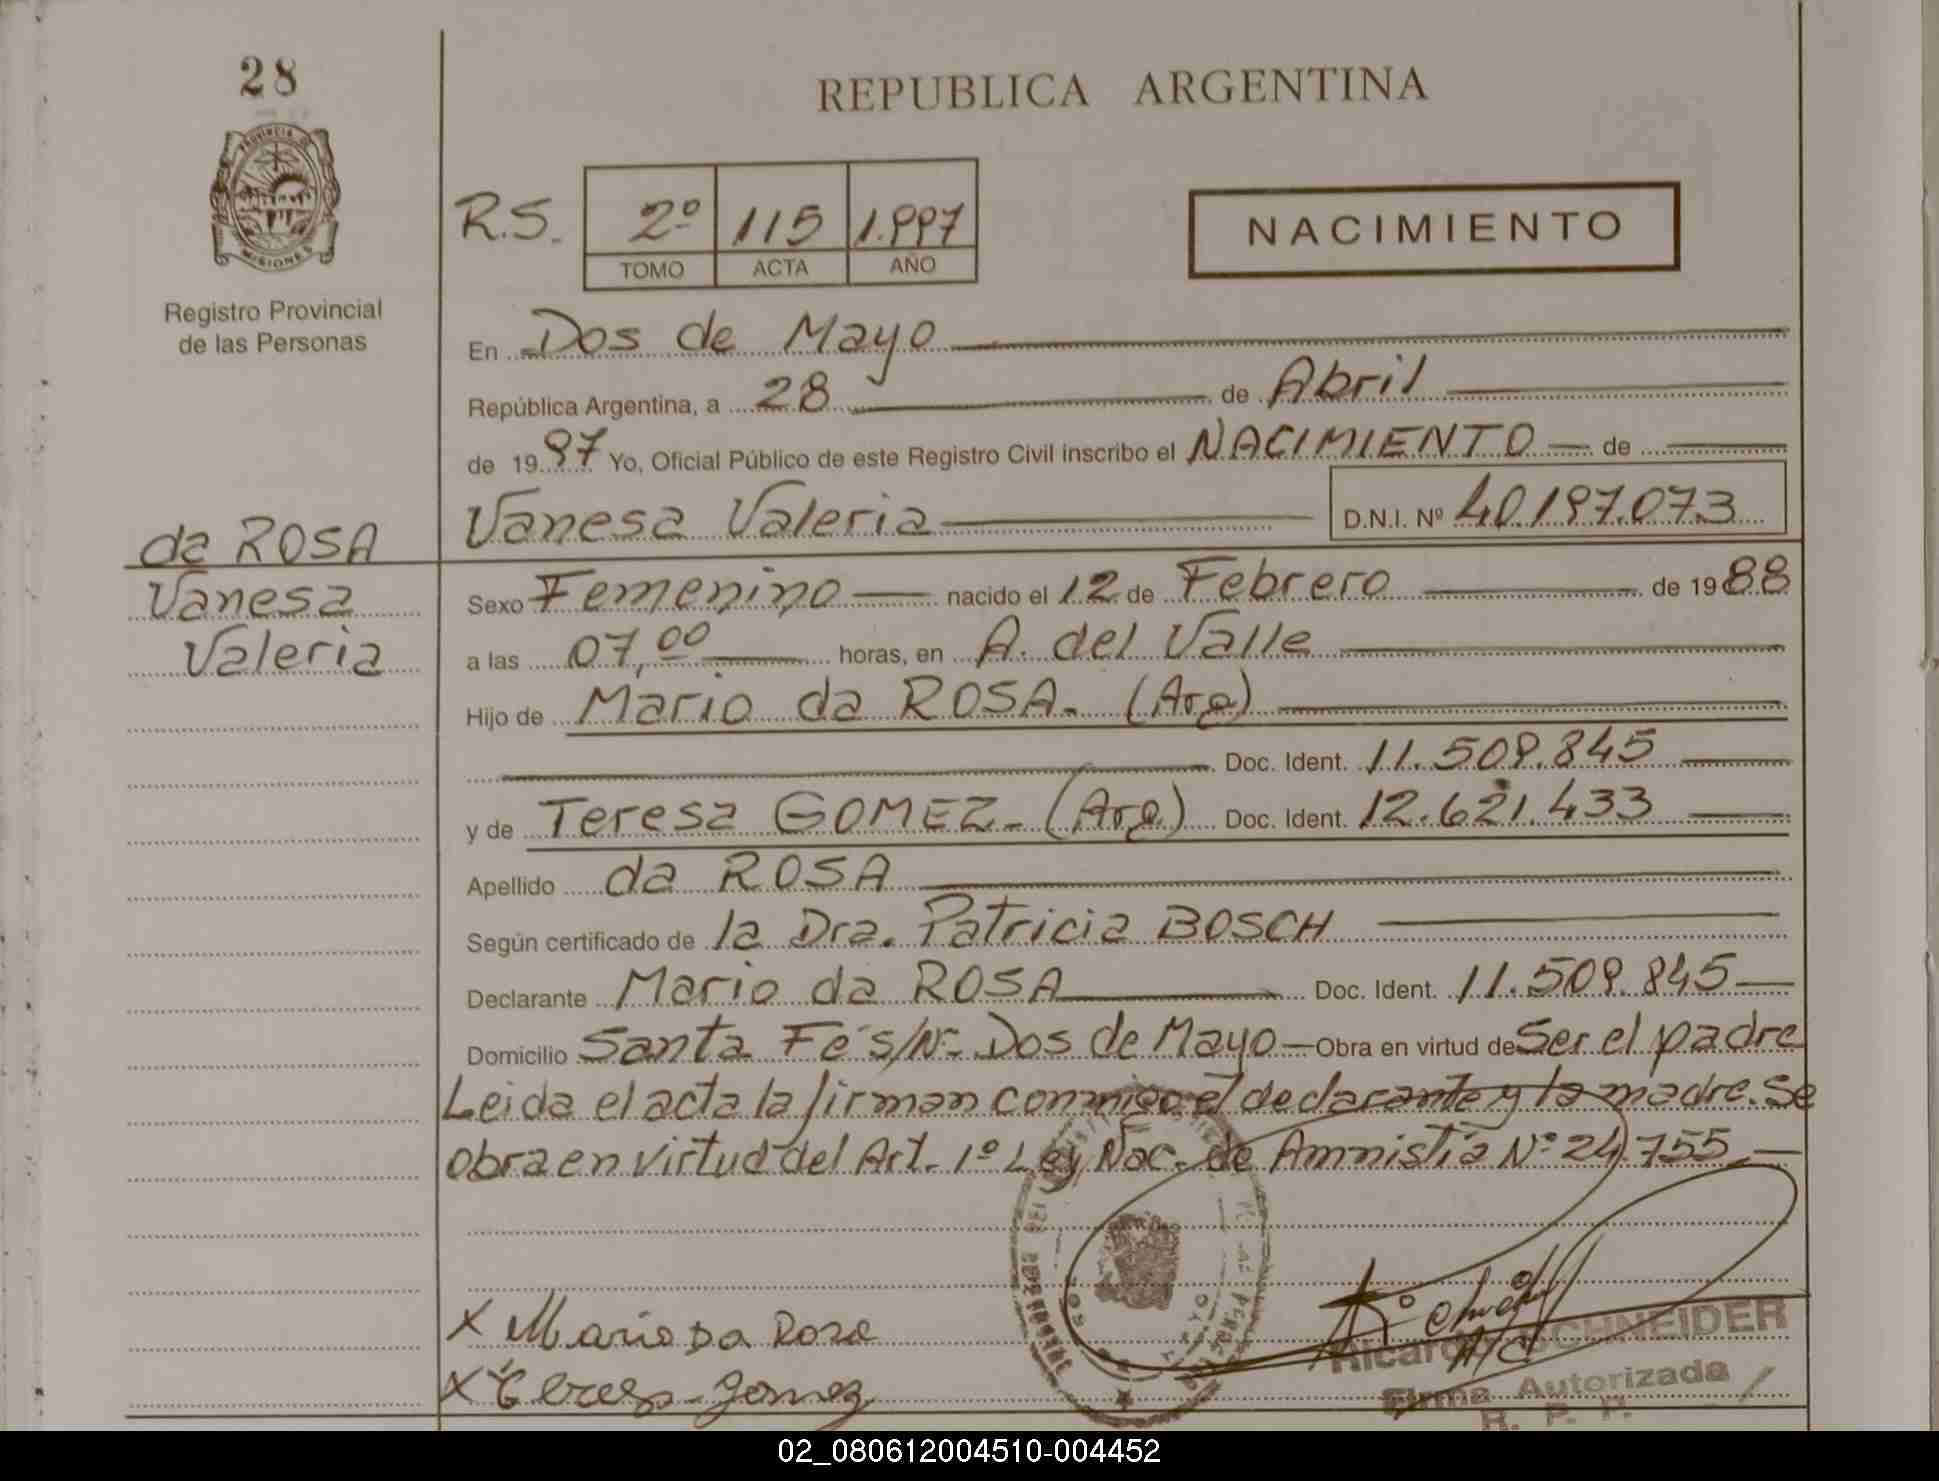 28
REPUBLICA ARGENTINA
PROVINCIA DE
MISIONES
Registro Provincial
de las Personas
R.S. 2º 115 1.997
TOMO ACTA AÑO
NACIMIENTO
En Dos de Mayo
República Argentina, a 28 de Abril
de 1997 Yo, Oficial Público de este Registro Civil inscribo el NACIMIENTO de
Vanesa Valeria D.N.I. Nº 40.197.073
da ROSA
Vanesa
Valeria
Sexo Femenino nacido el 12 de Febrero de 1988
a las 07,00 horas, en A. del Valle
Hijo de Mario da ROSA. (Arg)
Doc. Ident. 11.509.845
y de Teresa GOMEZ. (Arg) Doc. Ident. 12.621.433
Apellido da ROSA
Según certificado de la Dra. Patricia BOSCH
Declarante Mario da ROSA Doc. Ident. 11.509.845
Domicilio Santa Fe s/Nº Dos de Mayo Obra en virtud de Ser el padre
Leida el acta la firman conmigo el declarante y la madre. Se
obra en virtud del Art. 1º Ley Nac. de Amnistía Nº 24.755
X Mario Da Rosa
X Teresa Gomez
Ricardo SCHNEIDER
Firma Autorizada
R. P. P.
02_080612004510-004452